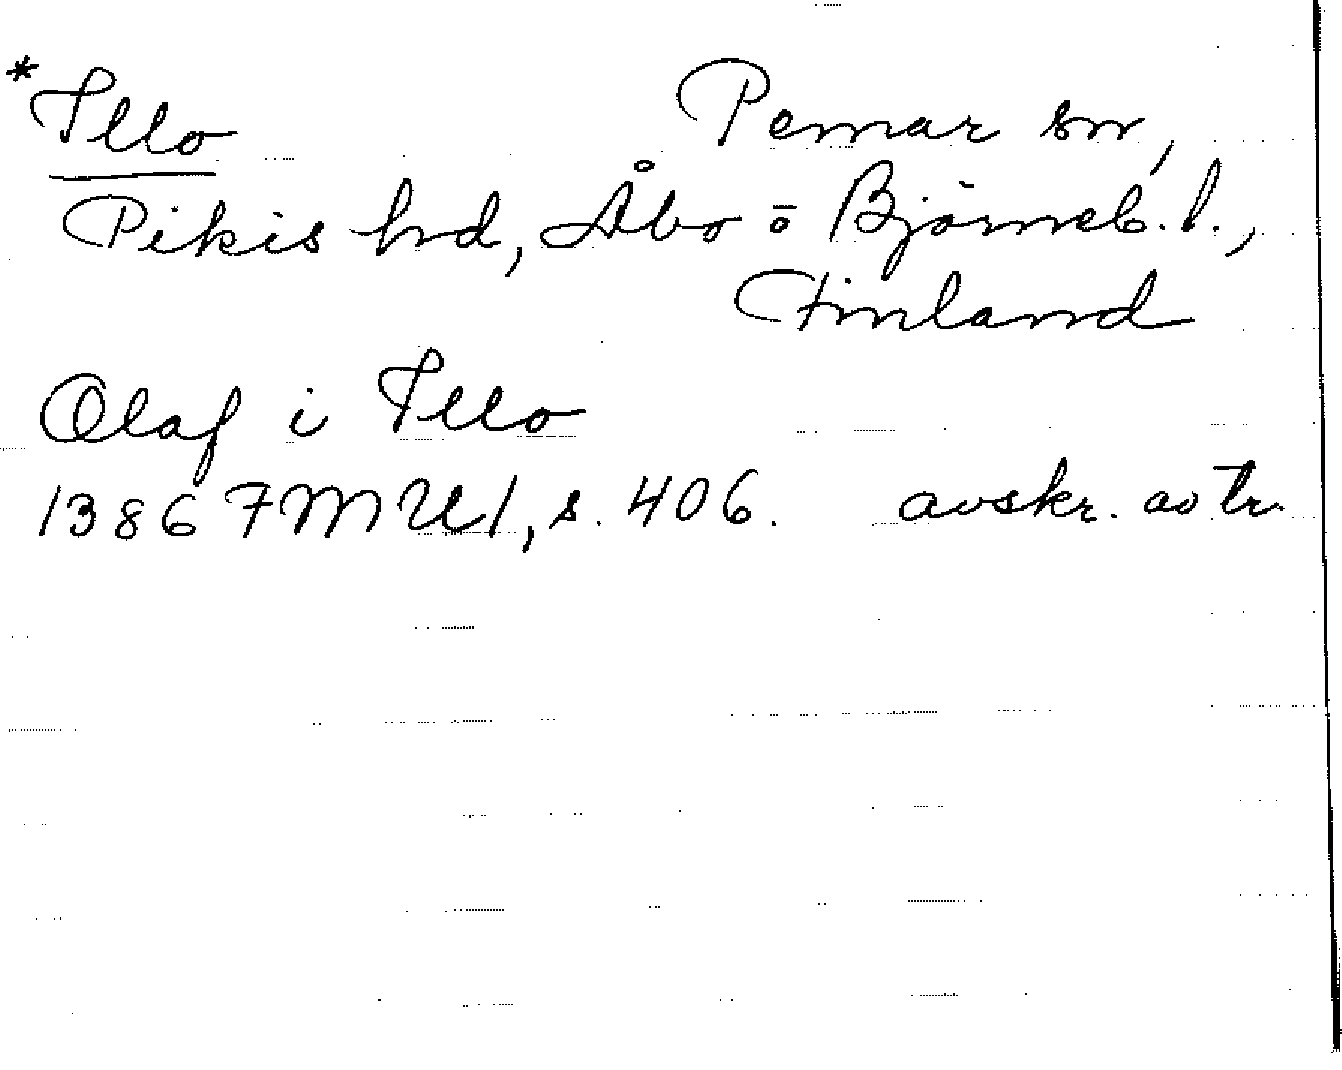 *Illo Pemar sn,
Pikis hd, Åbo o Björneb. l.,
Finland
Olaf i Illo
1386 FMU 1, s. 406. avskr. av tr.